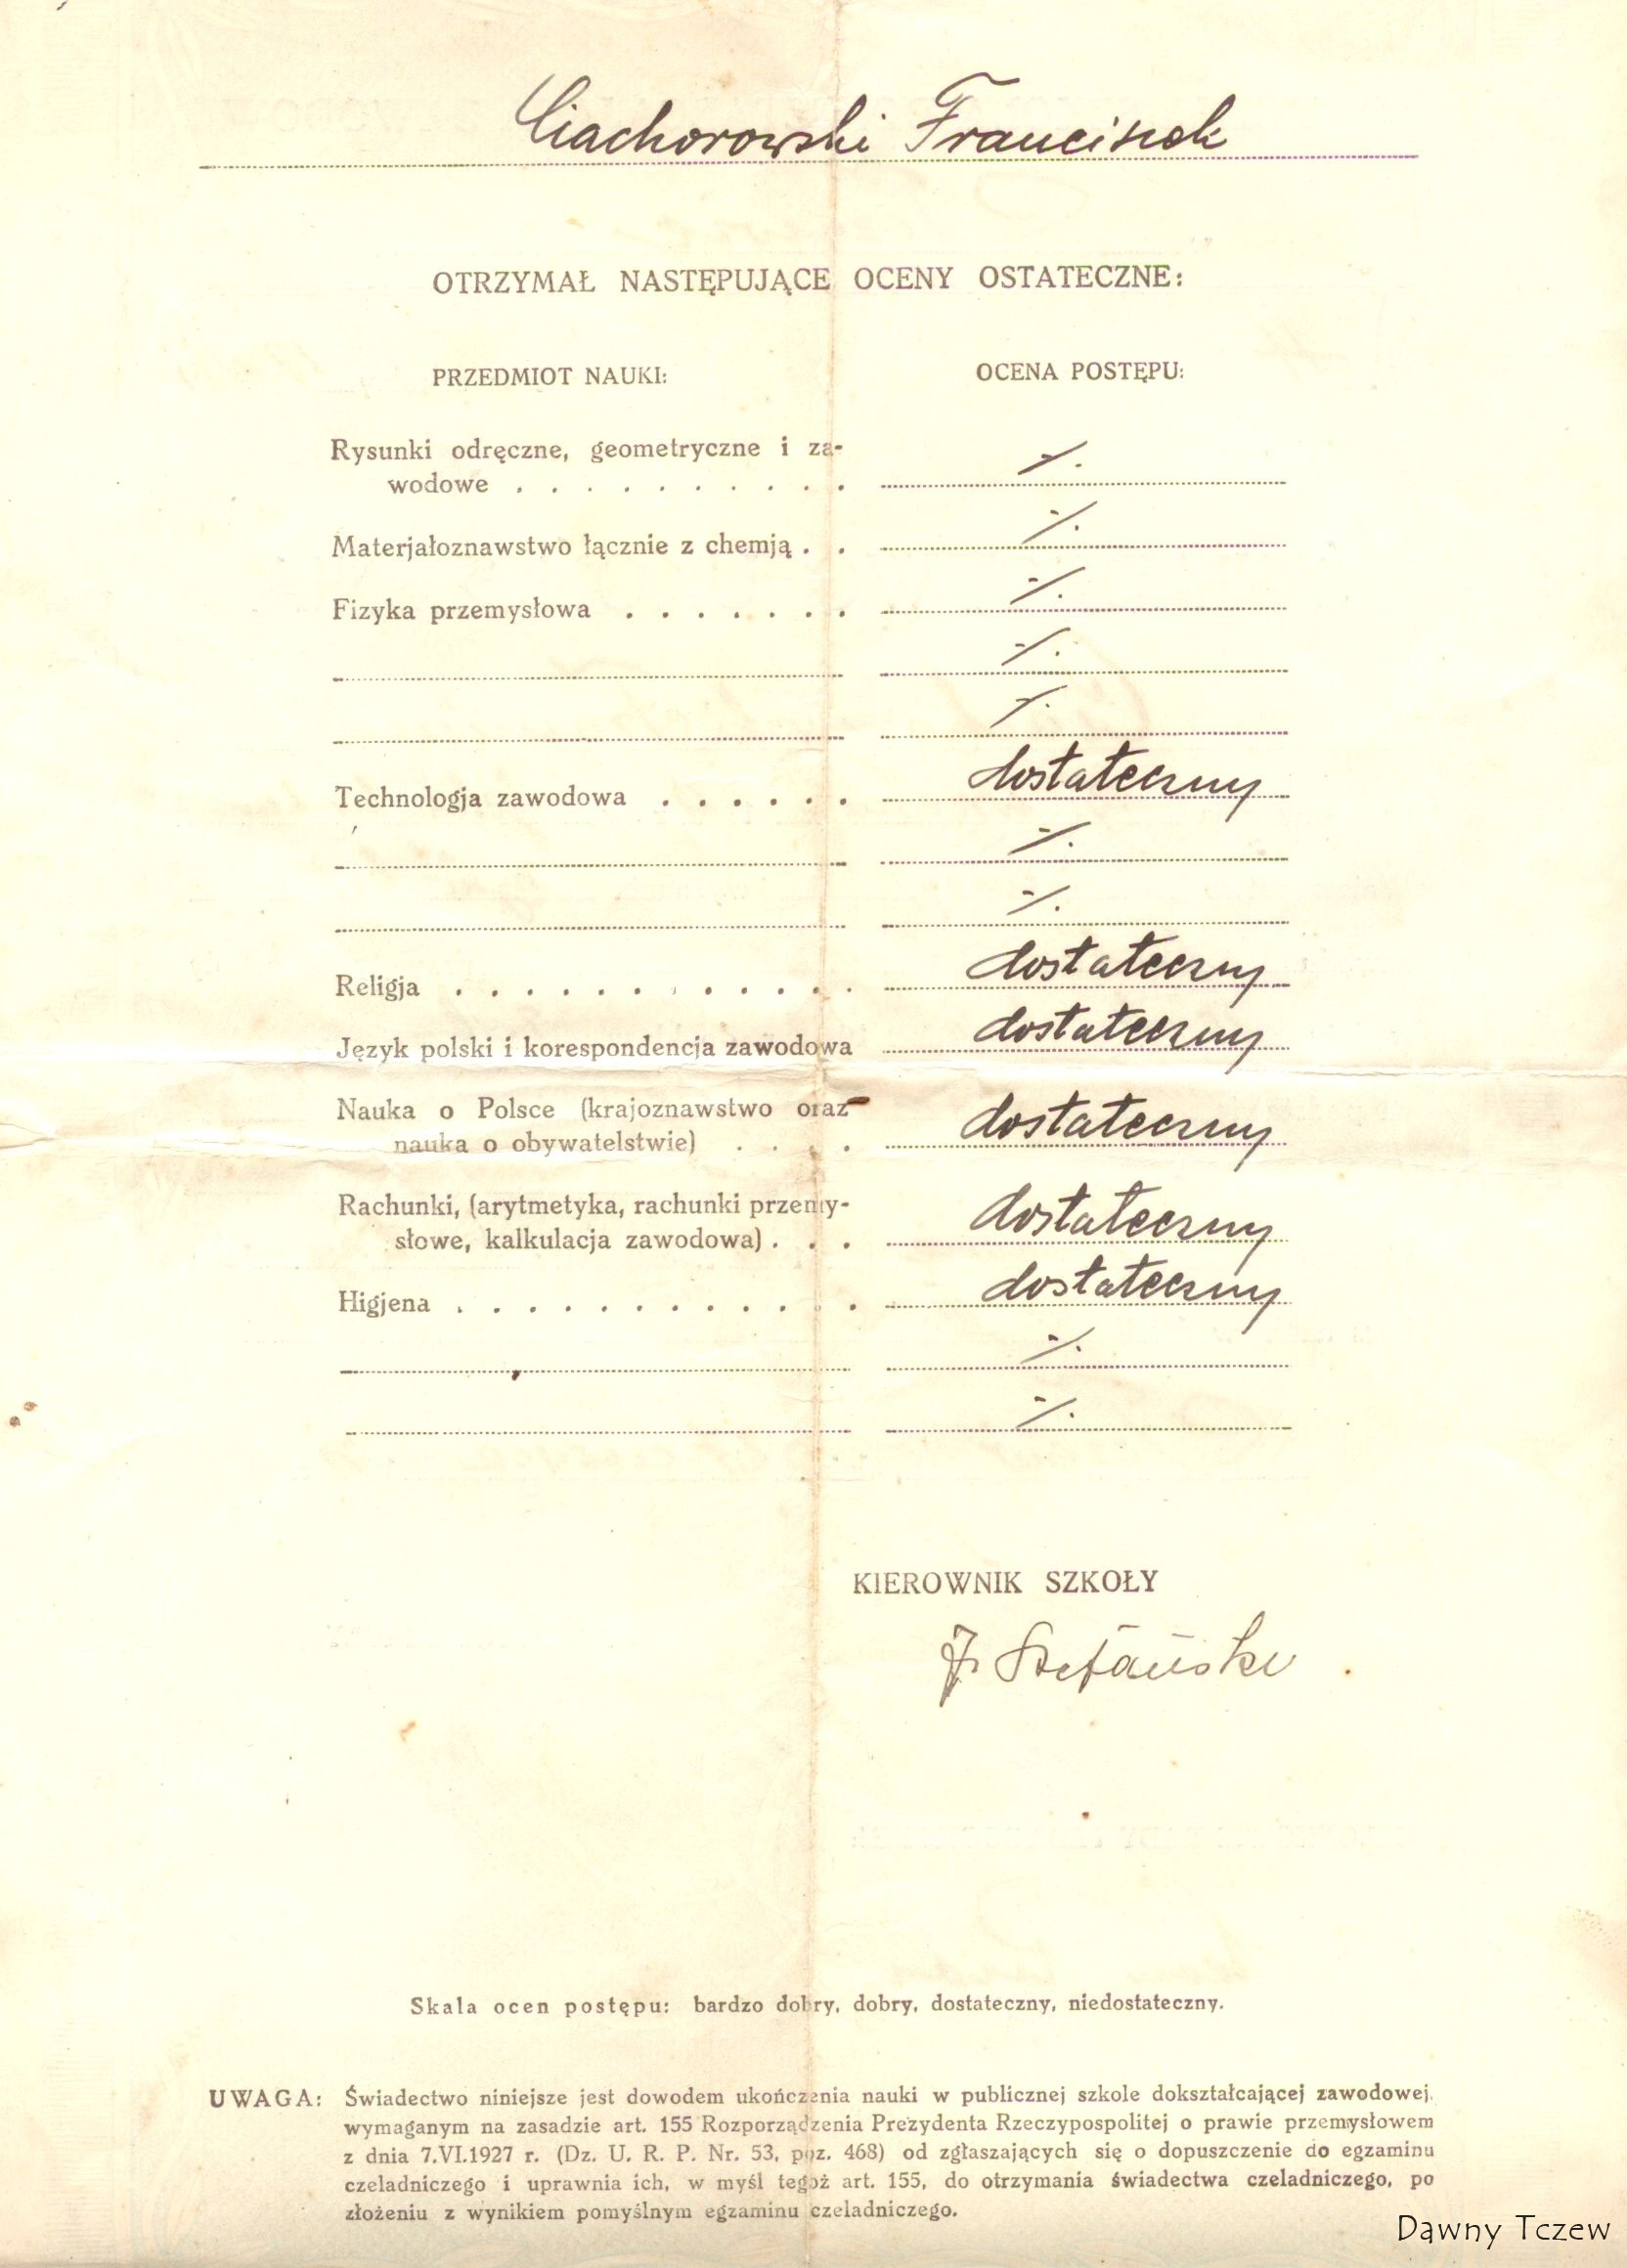 Ciachorowski Franciszek
OTRZYMAŁ NASTĘPUJĄCE OCENY OSTATECZNE:
PRZEDMIOT NAUKI: OCENA POSTĘPU:
Rysunki odręczne, geometryczne i za-
wodowe . . . . . . . . . . ./.
Materjałoznawstwo łącznie z chemją . . ./.
Fizyka przemysłowa . . . . . . . ./.
./.
./.
Technologja zawodowa . . . . . . dostateczny
./.
./.
Religja . . . . . . . . . . . . dostateczny
Język polski i korespondencja zawodowa dostateczny
Nauka o Polsce (krajoznawstwo oraz
nauka o obywatelstwie) . . . . dostateczny
Rachunki, (arytmetyka, rachunki przemy-
słowe, kalkulacja zawodowa) . . . dostateczny
Higjena . . . . . . . . . . . . dostateczny
./.
./.
KIEROWNIK SZKOŁY
J. Stefański
Skala ocen postępu: bardzo dobry, dobry, dostateczny, niedostateczny.
UWAGA: Świadectwo niniejsze jest dowodem ukończenia nauki w publicznej szkole dokształcającej zawodowej,
wymaganym na zasadzie art. 155 Rozporządzenia Prezydenta Rzeczypospolitej o prawie przemysłowem
z dnia 7.VI.1927 r. (Dz. U. R. P. Nr. 53, poz. 468) od zgłaszających się o dopuszczenie do egzaminu
czeladniczego i uprawnia ich, w myśl tegoż art. 155, do otrzymania świadectwa czeladniczego, po
złożeniu z wynikiem pomyślnym egzaminu czeladniczego.
Dawny Tczew